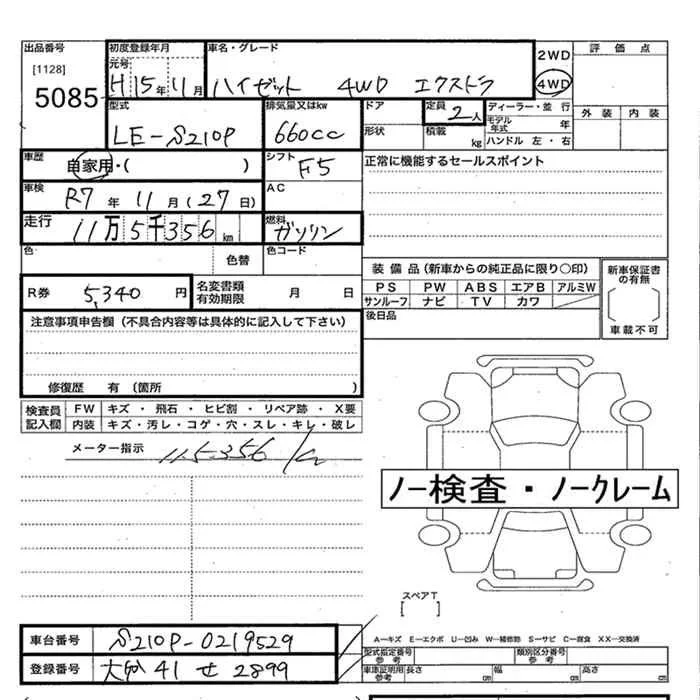 出品番号 初度登録年月 車名・グレード 評価点
[1128] 元号 2WD
5085 H 15年 11月 ハイゼット 4WD エクストラ 4WD
型式 排気量又はkw ドア 定員 2人 ディーラー・並行 外装 内装
LE-S210P 660cc 形状 積載 kg モデル年式 年
ハンドル 左・右
車歴 自家用・( ) シフト F5 正常に機能するセールスポイント
車検 R7年 11月(27日) AC
走行 11万5千356km 燃料 ガソリン
色・ 色替 色コード
装備品(新車からの純正品に限り〇印) 新車保証書の有無
R券 5,340円 名変書類有効期限 月 日 PS PW ABS エアB アルミW
サンルーフ ナビ TV カワ
車載不可
注意事項申告欄(不具合内容等は具体的に記入して下さい) 後日品
修復歴 有(箇所 )
検査員 FW キズ・飛石・ヒビ割・リペア跡・X要
記入欄 内装 キズ・汚レ・コゲ・穴・スレ・キレ・破レ
メーター指示 115356
ノー検査・ノークレーム
スペアT
[ ]
車台番号 S210P-0219529 A−キズ E−エクボ U−凹み W−補修跡 S−サビ C−腐食 XX−交換済
型式指定番号 参考 類別区分番号 参考
登録番号 41 せ 2899 車庫証明用 参考 長さ cm 幅 cm 高さ cm